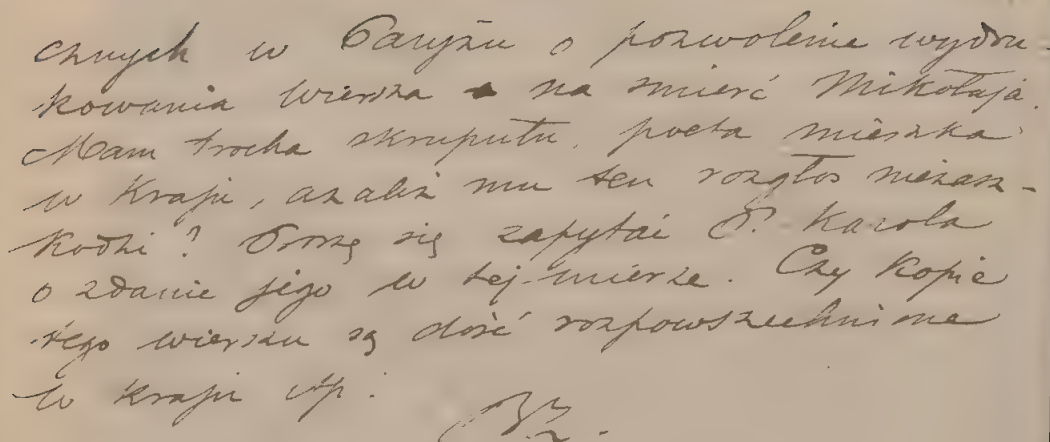 chnych w Paryżu o pozwolenie wydru-
kowania wiersza na śmierć Mikołaja.
Mam trocha skrupułu, poeta mieszka
w Kraju, azaliż mu ten rozgłos niezasz-
kodzi? Proszę się zapytać P. Karola
o zdanie jego w tej mierze. Czy Kopie
tego wierszu są dość rozpowszechnione
w kraju itp.
BZ.